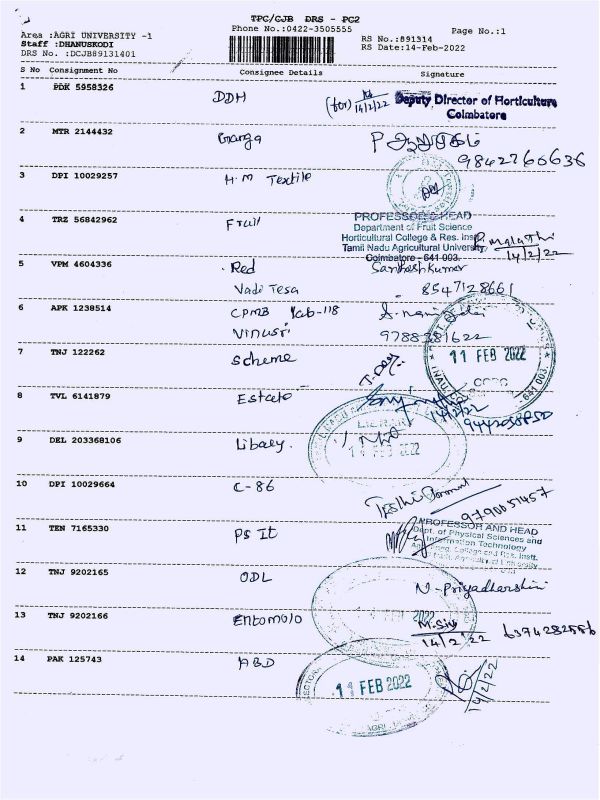 TPC/CJB DRS - PC2
Phone No.:0422-3505555
Page No.:1
Area :AGRI UNIVERSITY -1
Staff :DHANUSKODI
DRS No. :DCJB89131401
RS No.:891314
RS Date:14-Feb-2022
S No Consignment No Consignee Details Signature
1 PDK 5958326 DDH (for) 14/2/22 Deputy Director of Horticulture
Coimbatore
2 MTR 2144432 Ganga
9842760636
3 DPI 10029257 H.M Textile
4 TRZ 56842962 Fruit
PROFESSOR & HEAD
Department of Fruit Science
Horticultural College & Res. Inst.
Tamil Nadu Agricultural University
Coimbatore - 641 003.
P. Malathi
14/2/22
5 VPM 4604336 Red Santhosh Kumar
Vadi Tesa 8547128661
6 APK 1238514 CPMB lab-118
Vinusri 9788381622
7 TNJ 122262 Scheme
11 FEB 2022
641 003
8 TVL 6141879 Estate
14/2/22
9 DEL 203368106 Libaey.
FEB 2022
10 DPI 10029664 C-86
9790051457
11 TEN 7165330 PS It
PROFESSOR AND HEAD
Dept. of Physical Sciences and
Information Technology
12 TNJ 9202165 ODL N. Priyadharshini
13 TNJ 9202166 Entomolo M.Siv 6374282556
14/2/22
FEB 2022
14 PAK 125743 ABD
11 FEB 2022
14/2/22